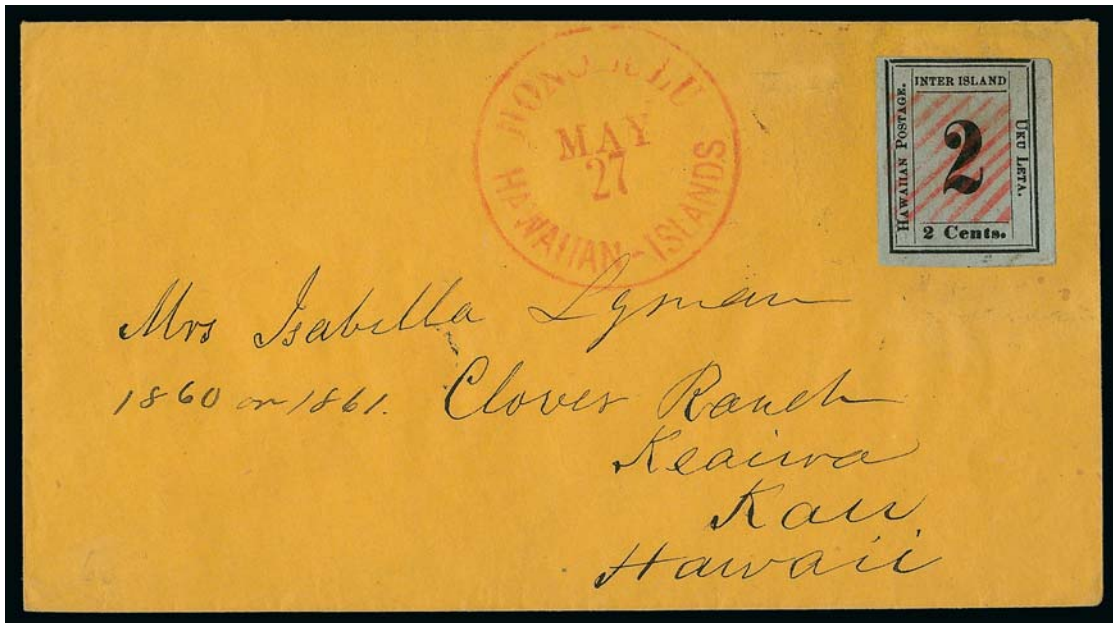 HONOLULU
MAY
27
HAWAIIAN-ISLANDS
HAWAIIAN POSTAGE.
INTER ISLAND
UKU LETA.
2
2 Cents.
Mrs Isabella Lyman
1860 or 1861. Clover Ranch
Keaiwa
Kau
Hawaii